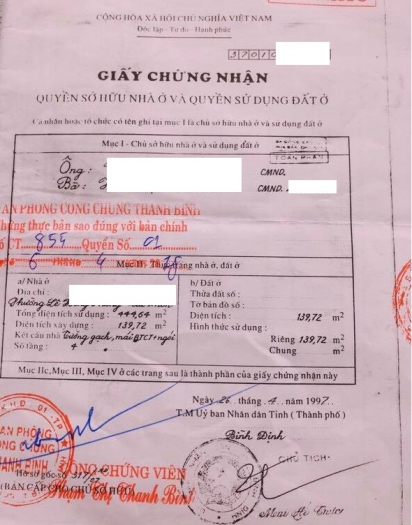 CỘNG HÒA XÃ HỘI CHỦ NGHĨA VIỆT NAM
Độc lập - Tự do - Hạnh phúc
37010
GIẤY CHỨNG NHẬN
QUYỀN SỞ HỮU NHÀ Ở VÀ QUYỀN SỬ DỤNG ĐẤT Ở
Cá nhân hoặc tổ chức có tên ghi tại mục I là chủ sở hữu nhà ở và sử dụng đất ở
Mục I - Chủ sở hữu nhà ở và sử dụng đất ở
Ông: CMND.
Bà: CMND.
VĂN PHÒNG CÔNG CHỨNG THANH BÌNH
Chứng thực bản sao đúng với bản chính
Số CT. 854 Quyển Số 01
6 THÁNG 4
Mục II - Thực trạng nhà ở, đất ở
a/ Nhà ở
Địa chỉ:
Phường Lê
Tổng diện tích sử dụng: 449,64 m²
Diện tích xây dựng: 139,72 m²
Kết cấu nhà Tường gạch, mái BTCT+ngói
Số tầng: 4
b/ Đất ở
Thửa đất số:
Tờ bản đồ số:
Diện tích: 139,72 m²
Hình thức sử dụng:
Riêng 139,72 m²
Chung m²
Mục IIc, Mục III, Mục IV ở các trang sau là thành phần của giấy chứng nhận này
Ngày 26 tháng 4 năm 1997
T.M Ủy ban Nhân dân Tỉnh (Thành phố)
Bình Định
CHỦ TỊCH
Hồ sơ gốc số
(BẢN CẤP CHO CHỦ SỞ HỮU)
CÔNG CHỨNG VIÊN
Phạm Thị Thanh Bình